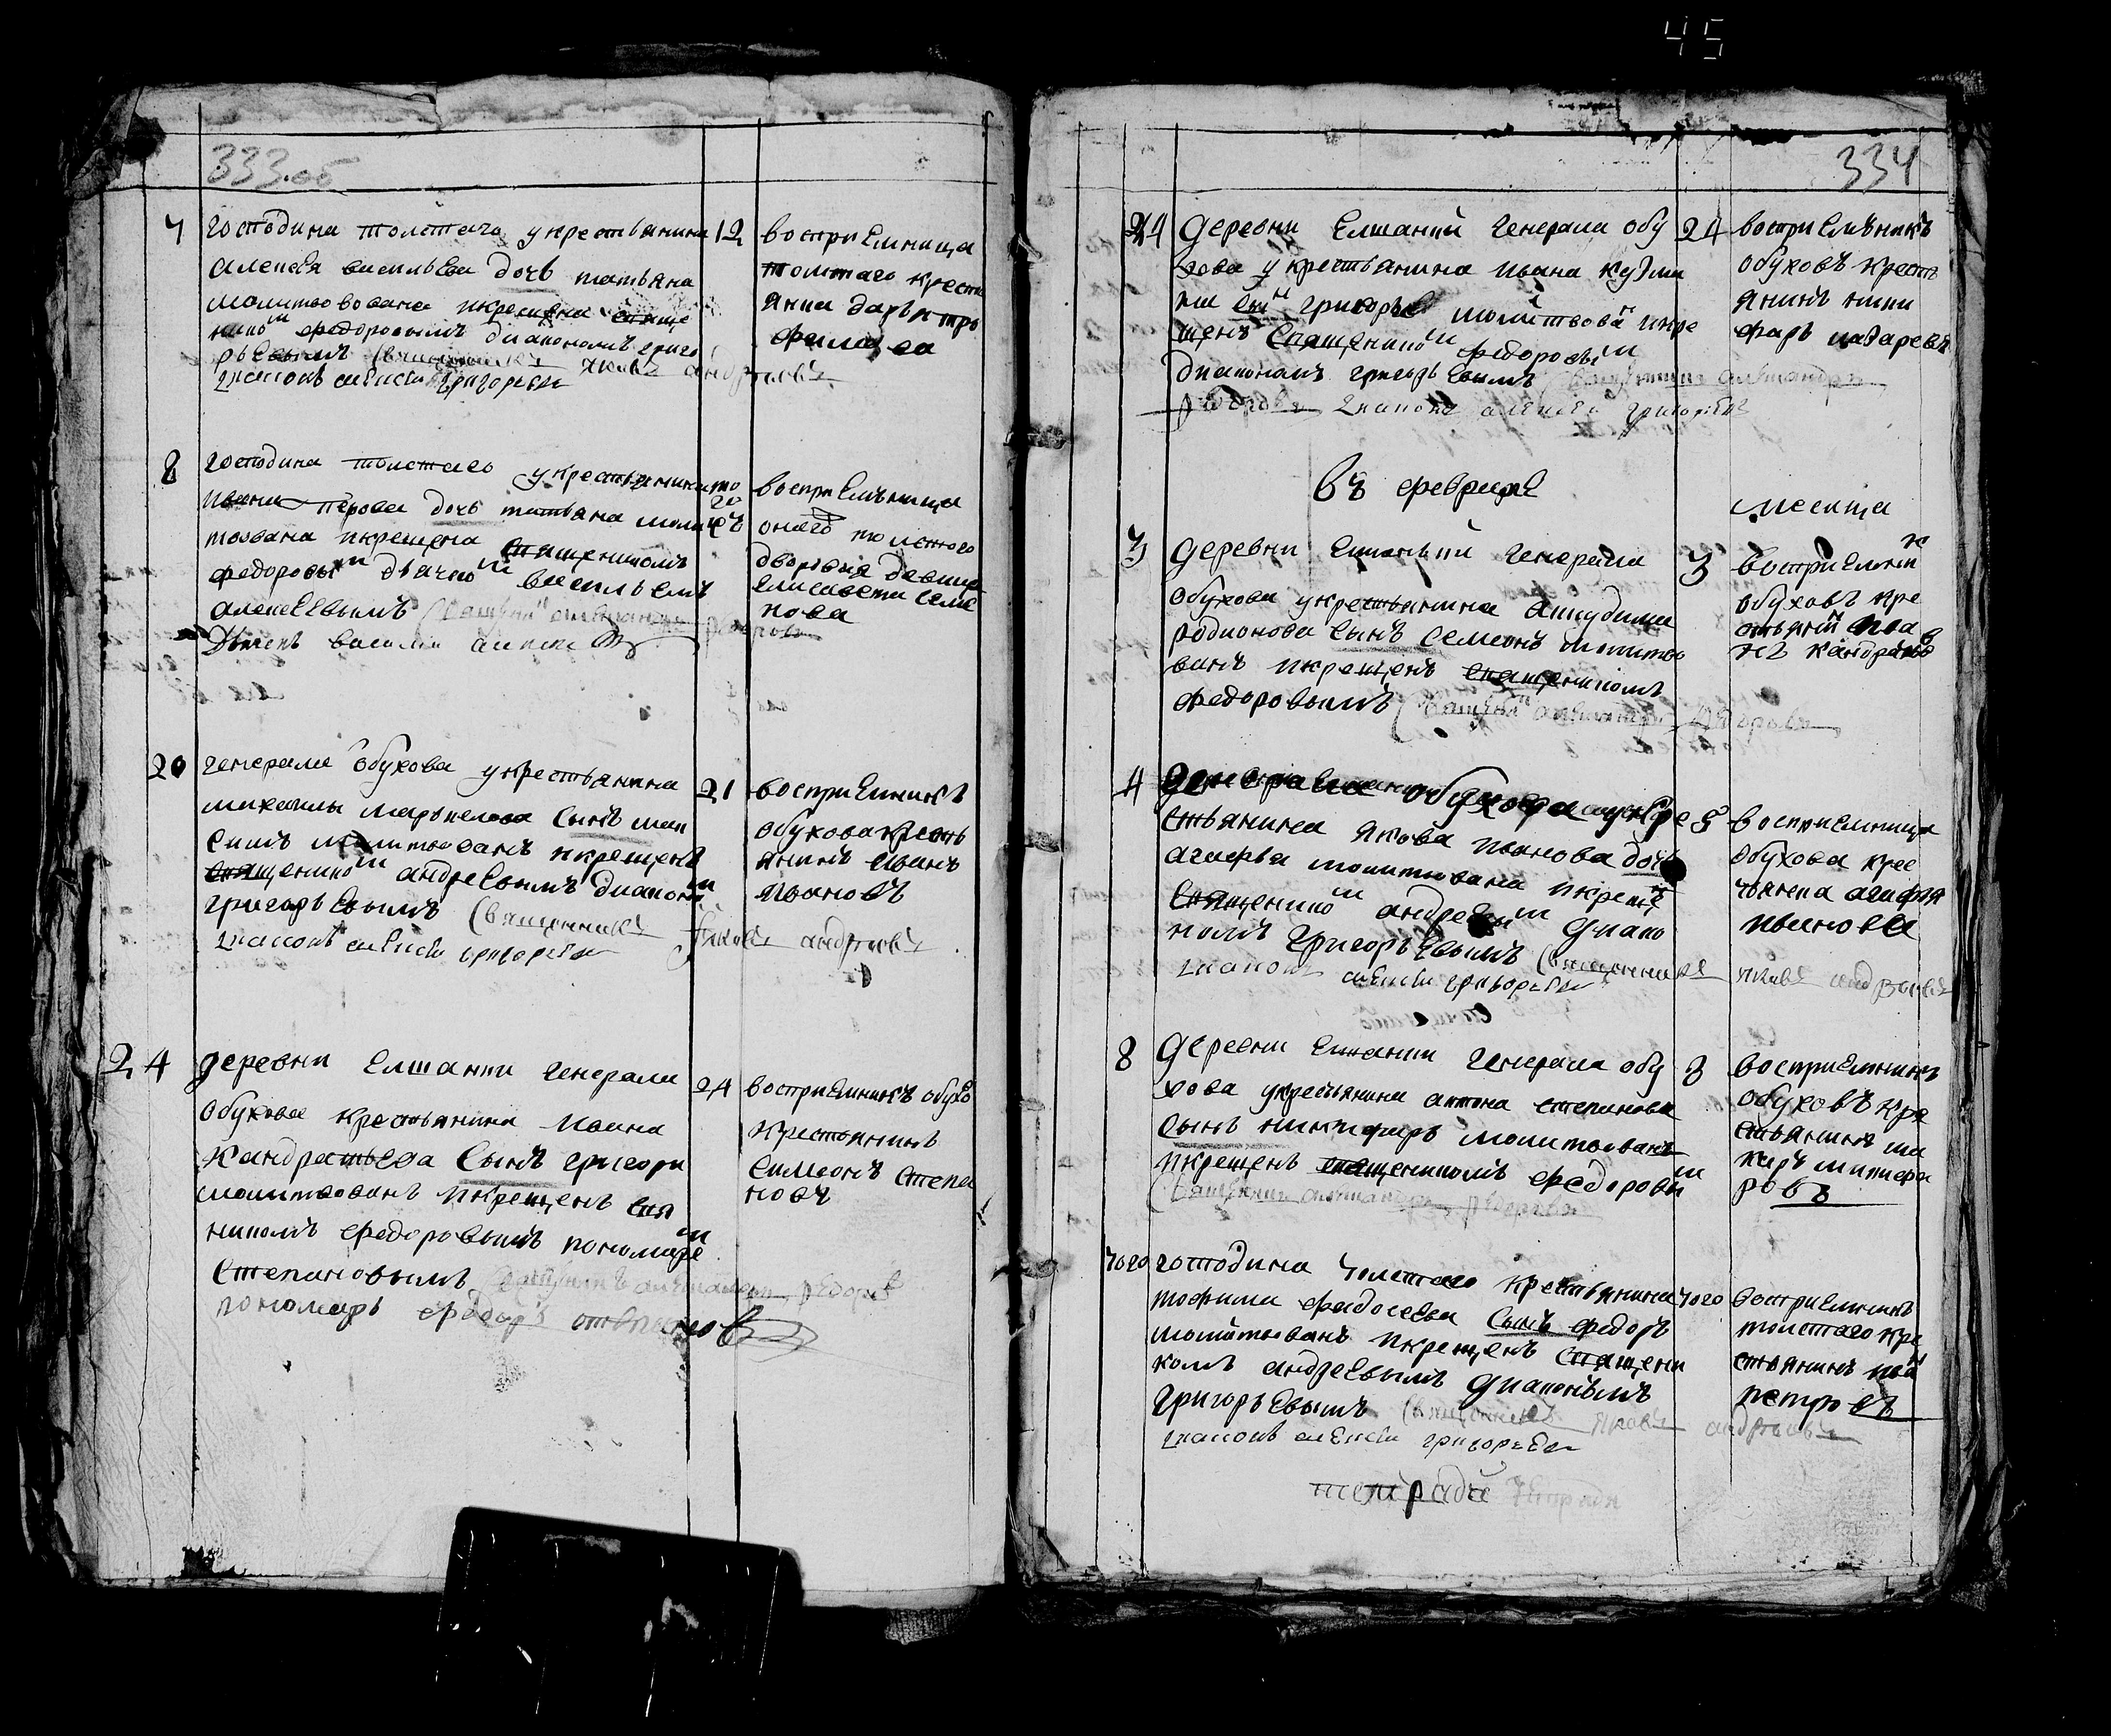 45
333.об
7 господина толстаго укрестьянина 12
алексея васильева дочь татьяна
молитвована икрещена свяще
никомъ федоровымъ диакономъ григо
рьевымъ священникъ яковъ андреевъ
диаконъ алексеи григорьевъ
восприемница
толстаго крестя
янка дарья тро
фимова
8 господина толстаго укрестьянина то
ивана петрова дочь татьяна моли го ж
твована икрещена священникомъ
федоровымъ дьячкомъ васильемъ
алексеевымъ священникъ александръ федоровъ
Дьячекъ василии алексеевъ
восприемъница
онаго толстого
дворовыя девица
елисавета семе
нова
20 генерала обухова укрестьянина 21
михаилы маркелова сынъ мак
симъ молитвованъ икрещенъ
священникомъ андреевымъ диакономъ
григорьевымъ священникъ яковъ андреевъ
диаконъ алексеи григорьевъ
восприемникъ
обухова кресть
янинъ иванъ
ивановъ
24 деревни елшанки генерала 24
обухова крестьянина ивана
кандратьева сынъ григори
молитвованъ икрещенъ свя
никомъ федоровымъ пономаремъ
степановымъ священникъ александръ федоровъ
пономарь федоръ степановъ
восприемникъ обухо
крестьянинъ
симеонъ степа
новъ
334
24 деревни елшанки генерала обу 24
хова укрестьянина ивана кузми
на сынъ григорьеи молитвованъ икре
щенъ священникомъ федоровымъ
диакономъ григорьевымъ священникъ александръ
федоровъ диаконъ алексеи григорьевъ
восприемъникъ
обуховъ кресть
янинъ ники
форъ назаревъ
въ феврале месяца
3 деревни елшанки генерала 3
обухова укрестьянина анкудина
родионова сынъ семеонъ молитво
ванъ икрещенъ священникомъ
федоровымъ священникъ александръ федоровъ
восприемникъ
обуховъ кре
стьянинъ ива
нъ кандратьев
4 генерала обухова укре 5
стьянина якова иванова дочь
агафья молитвована икрещена
священникомъ андреевымъ диако
номъ григорьевымъ священникъ яковъ андреевъ
диаконъ алексеи григорьевъ
восприемница
обухова крес
тьянка агафия
иванова
8 деревни елшанки генерала обу 8
хова укрестьянина антона степанова
сынъ никифоръ молитвованъ
икрещенъ священникомъ федоровым
священникъ александръ федоровъ
восприемникъ
обуховъ кре
стьянинъ ма
каръ никифо
ровъ
того господина толстаго крестьянина того
трофима федосеева сынъ федоръ
молитвованъ икрещенъ священи
комъ андреевымъ диакономъ
григорьевымъ священникъ яковъ андреевъ
диаконъ алексеи григорьевъ
восприемникъ
толстаго кре
стьянинъ иван
петровъ
тетради